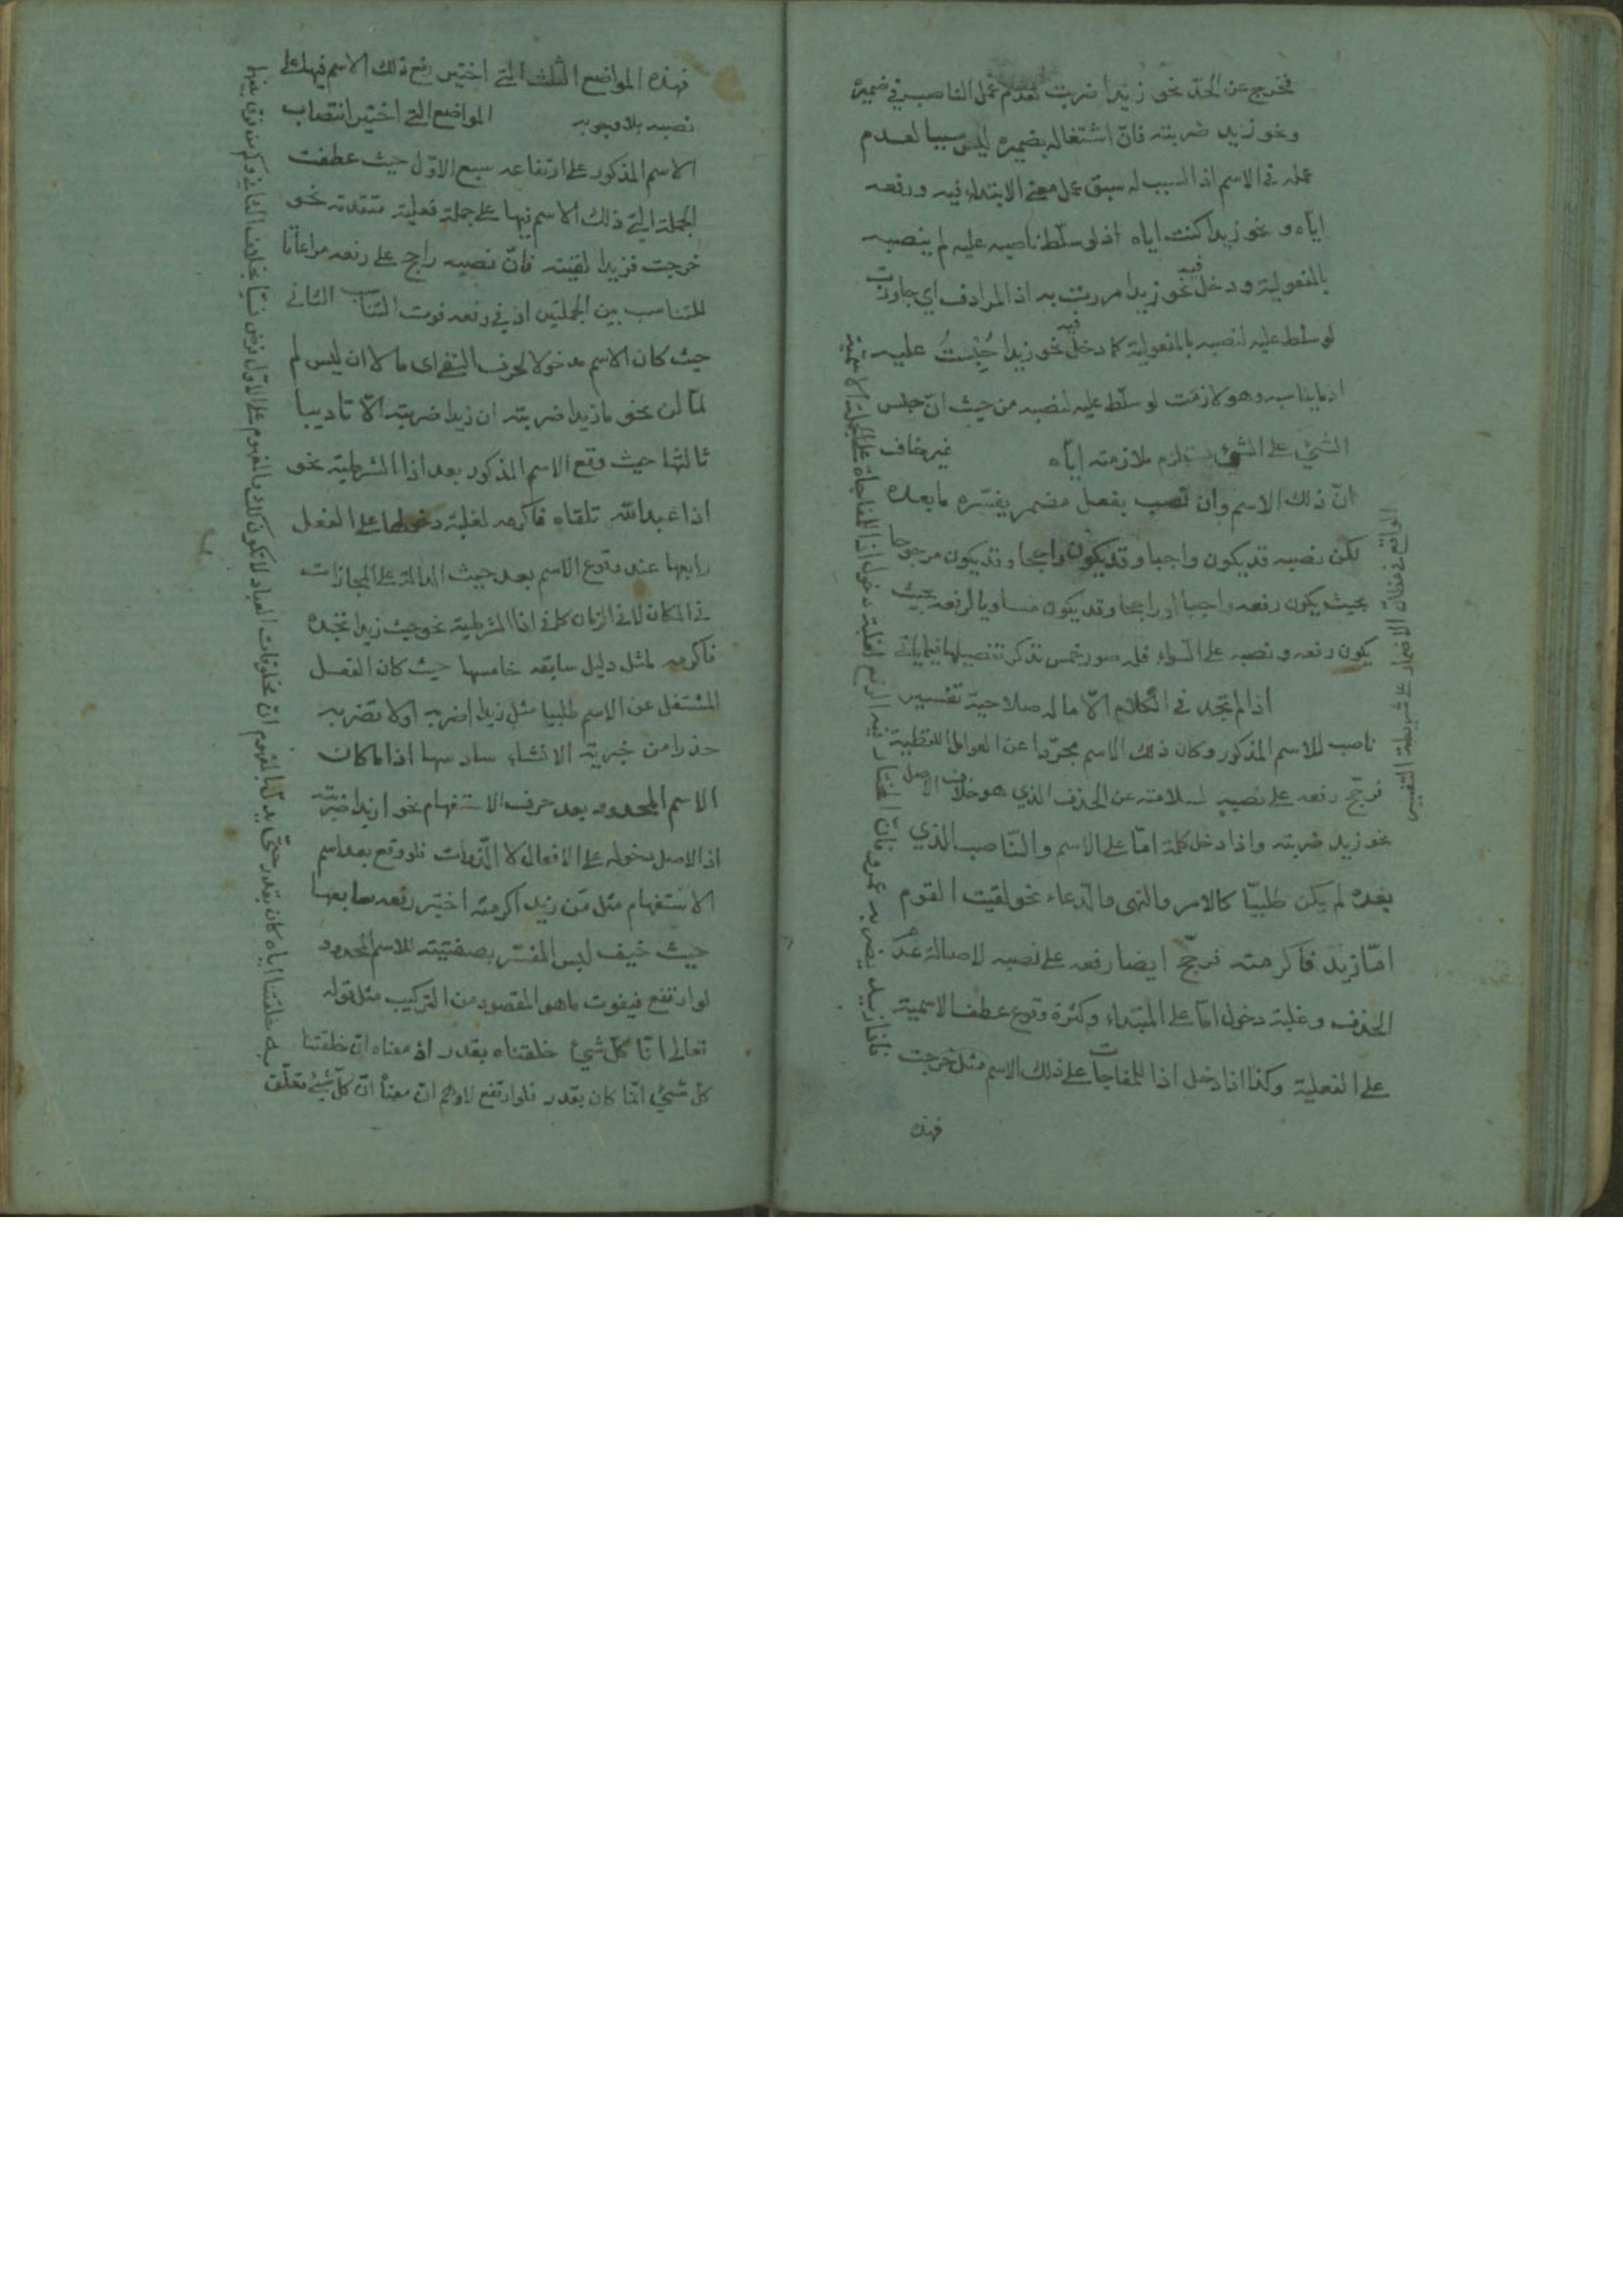 فخرج عن الحدّ نحو زيدا ضربت لعدم عمل الناصب في ضميره
ونحو زيد ضربته فانّ اشتغاله بضميره ليس سببا لعدم
عمله في الاسم اذ السبب له سبق عمل معنى الابتداء فيه ورفعه
ايّاه ونحو زيدا كنت اياه اذ لو سلّط ناصبه عليه لم ينصبه
بالمفعولية ودخل فيه نحو زيدا مررت به اذ المرادف اي جاوزت
لو سلّط عليه لنصبه بالمفعولية كما دخل فيه نحو زيدا حُبِستُ عليه
اذ ما يناسبه وهو لازمت لو سلّط عليه لنصبه من حيث انّ حبس
الشيئ على الشيئ يستلزم ملازمته ايّاه غير خاف
انّ ذلك الاسم وان نصب بفعل مضمر يفسّره ما بعده
لكن نصبه قد يكون واجبا وقد يكون راجحا وقد يكون مرجوحا
بحيث يكون رفعه واجبا او راجحا وقد يكون مساويا لرفعه بحيث
يكون رفعه ونصبه على السّواء فله صور خمس نذكر تفصيلها فيما يأتي
اذا لم تجد في الكلام الّا ما له صلاحية تفسير
ناصب للاسم المذكور وكان ذلك الاسم مجرّدا عن العوامل اللفظية
ترجّح رفعه على نصبه لسلامته عن الحذف الذي هو خلاف الاصل
نحو زيد ضربته واذا دخل كلمة امّا على الاسم والنّاصب الذي
بعده لم يكن طلبيّا كالامر والنهي والدّعاء نحو لقيت القوم
امّا زيد فاكرمته ترجّح ايضا رفعه على نصبه لاصالة عدم
الحذف وغلبة دخول امّا على المبتداء وكثرة وقوع عطف الاسمية
على الفعلية وكذا اذا دخل اذا للمفاجات على ذلك الاسم مثل خرجت
فاذا زيد يضربه عمرو فانّ المختار فيه الرفع لغلبة دخول اذا للمفاجاة على الجملة الاسمية
الواقع في مظانّ الاضمار على شريطة التفسير
فهذه
فهذه المواضع الثلث التي اختير رفع ذلك الاسم فيها على
نصبه بلا وجوبه المواضع التي اختير انتصاب
الاسم المذكور على ارتفاعه سبع الاوّل حيث عطفت
الجملة التي ذلك الاسم فيها على جملة فعلية متقدمة نحو
خرجت فزيدا لقيته فانّ نصبه راجح على رفعه مراعاتا
للتناسب بين الجملتين اذ في رفعه فوت التناسب الثاني
حيث كان الاسم مدخولا لحرف النفي اى ما لا ان ليس لم
لمّا لن نحو ما زيدا ضربته ان زيدا ضربته الّا تاديبا
ثالثها حيث وقع الاسم المذكور بعد اذا الشرطية نحو
اذا عبد الله تلقاه فاكرمه لغلبة دخولها على الفعل
رابعها عند وقوع الاسم بعد حيث الدالة على المجازات
في المكان لا في الزمان كما في اذا الشرطية نحو حيث زيدا تجده
فاكرمه لمثل دليل سابقه خامسها حيث كان الفعل
المشتغل عن الاسم طلبيا مثل زيدا اضربه او لا تضربه
حذرا من خبرية الانشاء سادسها اذا ما كان
الاسم المحدود بعد حرف الاستفهام نحو ازيدا ضربته
اذ الاصل دخوله على الافعال لا الذّوات فلو وقع بعد اسم
الاستفهام مثل مَن زيد اكرمته اختير رفعه سابعها
حيث خيف لبس المفسّر بصفتيته للاسم المحدود
لو ارتفع فيفوت ما هو المقصود من التركيب مثل قوله
تعالى انّا كلّ شيئ خلقناه بقدر اذ معناه انّ خلقتنا
كلّ شيئ انّما كان بقدر فلو ارتفع لاوهم ان معناه انّ كلّ شيئ تعلّق
به خلقتنا اياه كان بقدر حتّى يدلّ بالمفهوم انّ مخلوقات العباد لا تكون كذلك والمفهوم على الاوّل بخلاف الثاني وكم من فرق بينهما